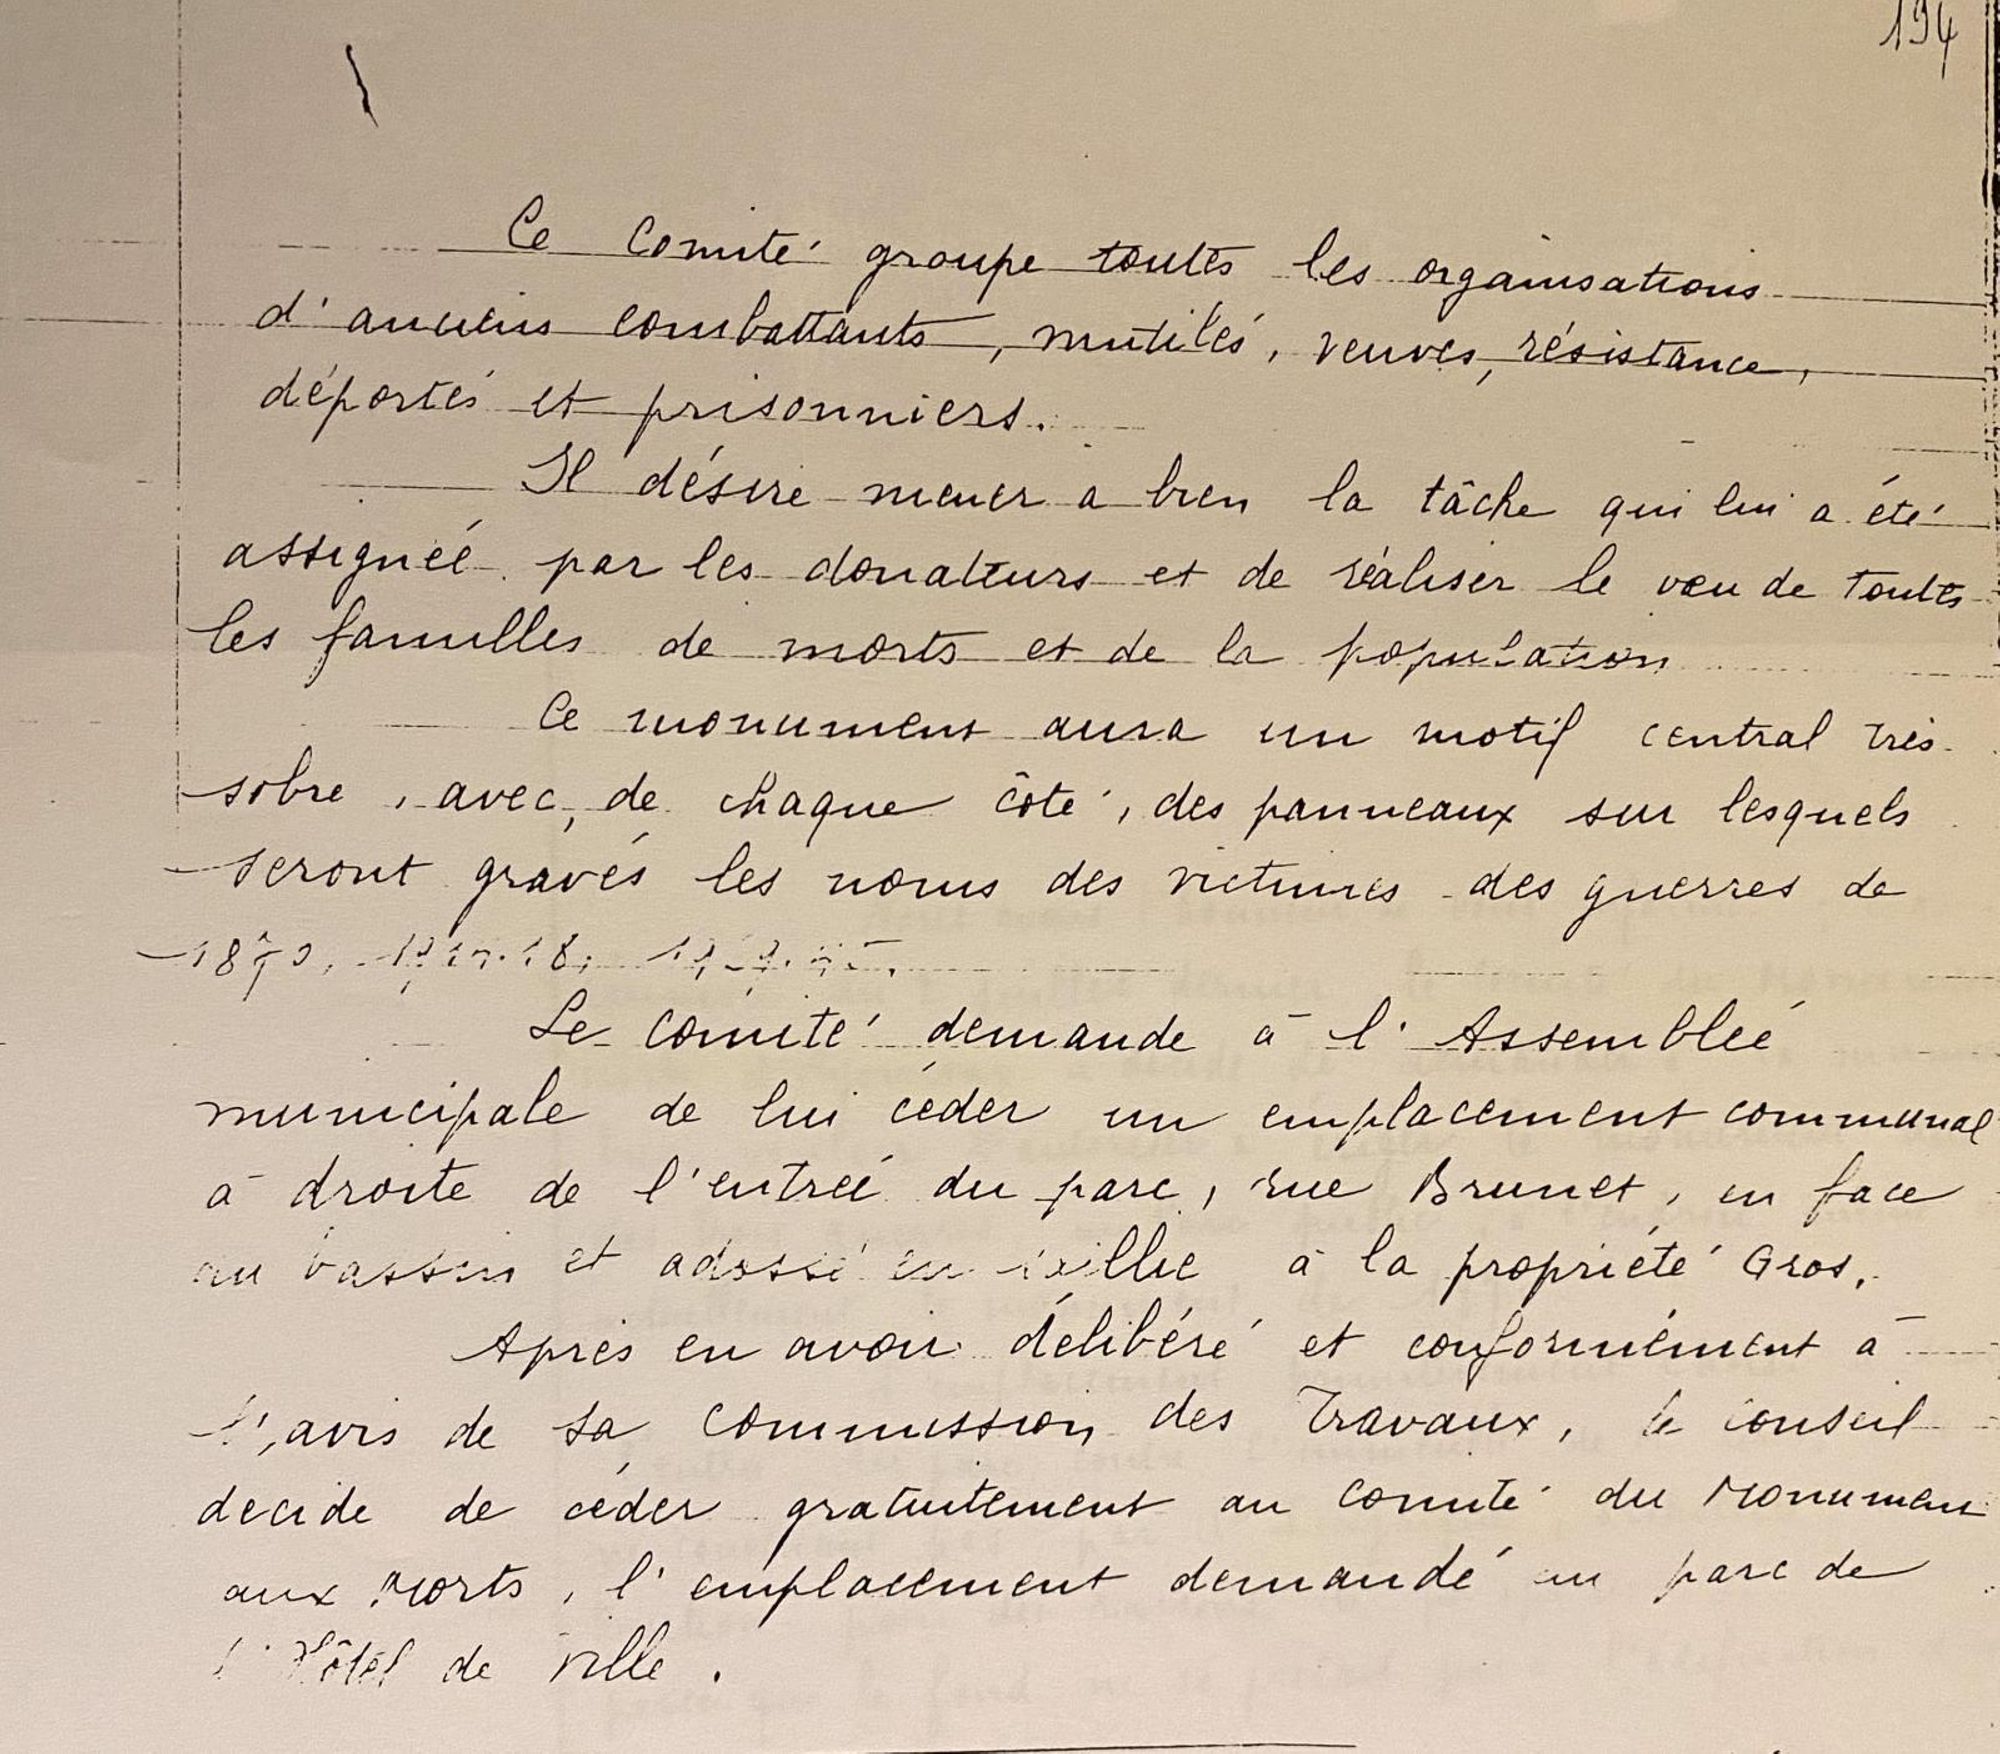 194
Ce Comité groupe toutes les organisations
d'anciens combattants, mutilés, veuves, résistance,
déportés et prisonniers.
Il désire mener a bien la tâche qui lui a été
assignée par les donateurs et de réaliser le vœu de toutes
les familles de morts et de la population
Ce monument aura un motif central très
sobre, avec, de chaque côté, des panneaux sur lesquels
seront gravés les noms des victimes des guerres de
1870,
Le Comité demande à l'Assemblée
municipale de lui céder un emplacement communal
à droite de l'entrée du parc, rue Brunet, en face
au bassin et adossé à la propriété Gros.
Après en avoir délibéré et conformément à
l'avis de sa Commission des Travaux, le Conseil
décide de céder gratuitement au Comité du Monumen
aux Morts, l'emplacement demandé au parc de
l'Hôtel de Ville.